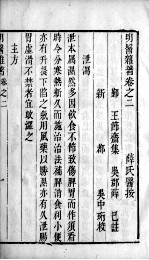 明醫雜著卷之二 薛氏醫按
鄞 王節齋集 吳郡薛 已註
新都 吳中珩校
泄瀉
泄本屬濕然多因飲食不節致傷脾胃而作須看
時令分寒熱新久而施治治法補脾消食利小便
亦有升提下陷之氣用風藥以勝濕亦有久泄腸
胃虛滑不禁者宜收澀之
主方
明醫雜著卷之二